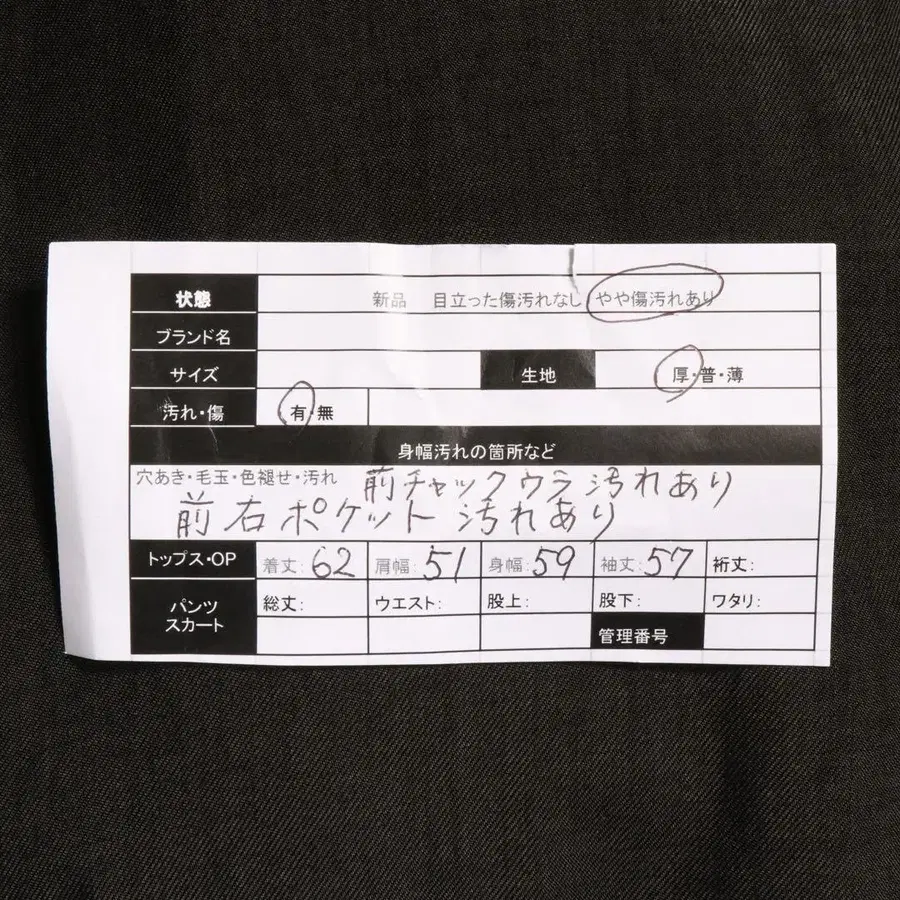 状態 新品 目立った傷汚れなし やや傷汚れあり
ブランド名
サイズ 生地 厚・普・薄
汚れ・傷 有・無
身幅汚れの箇所など
穴あき・毛玉・色褪せ・汚れ 前チャックウラ汚れあり
前右ポケット 汚れあり
トップス・OP 着丈:62 肩幅:51 身幅:59 袖丈:57 裄丈:
パンツ 総丈: ウエスト: 股上: 股下: ワタリ:
スカート 管理番号